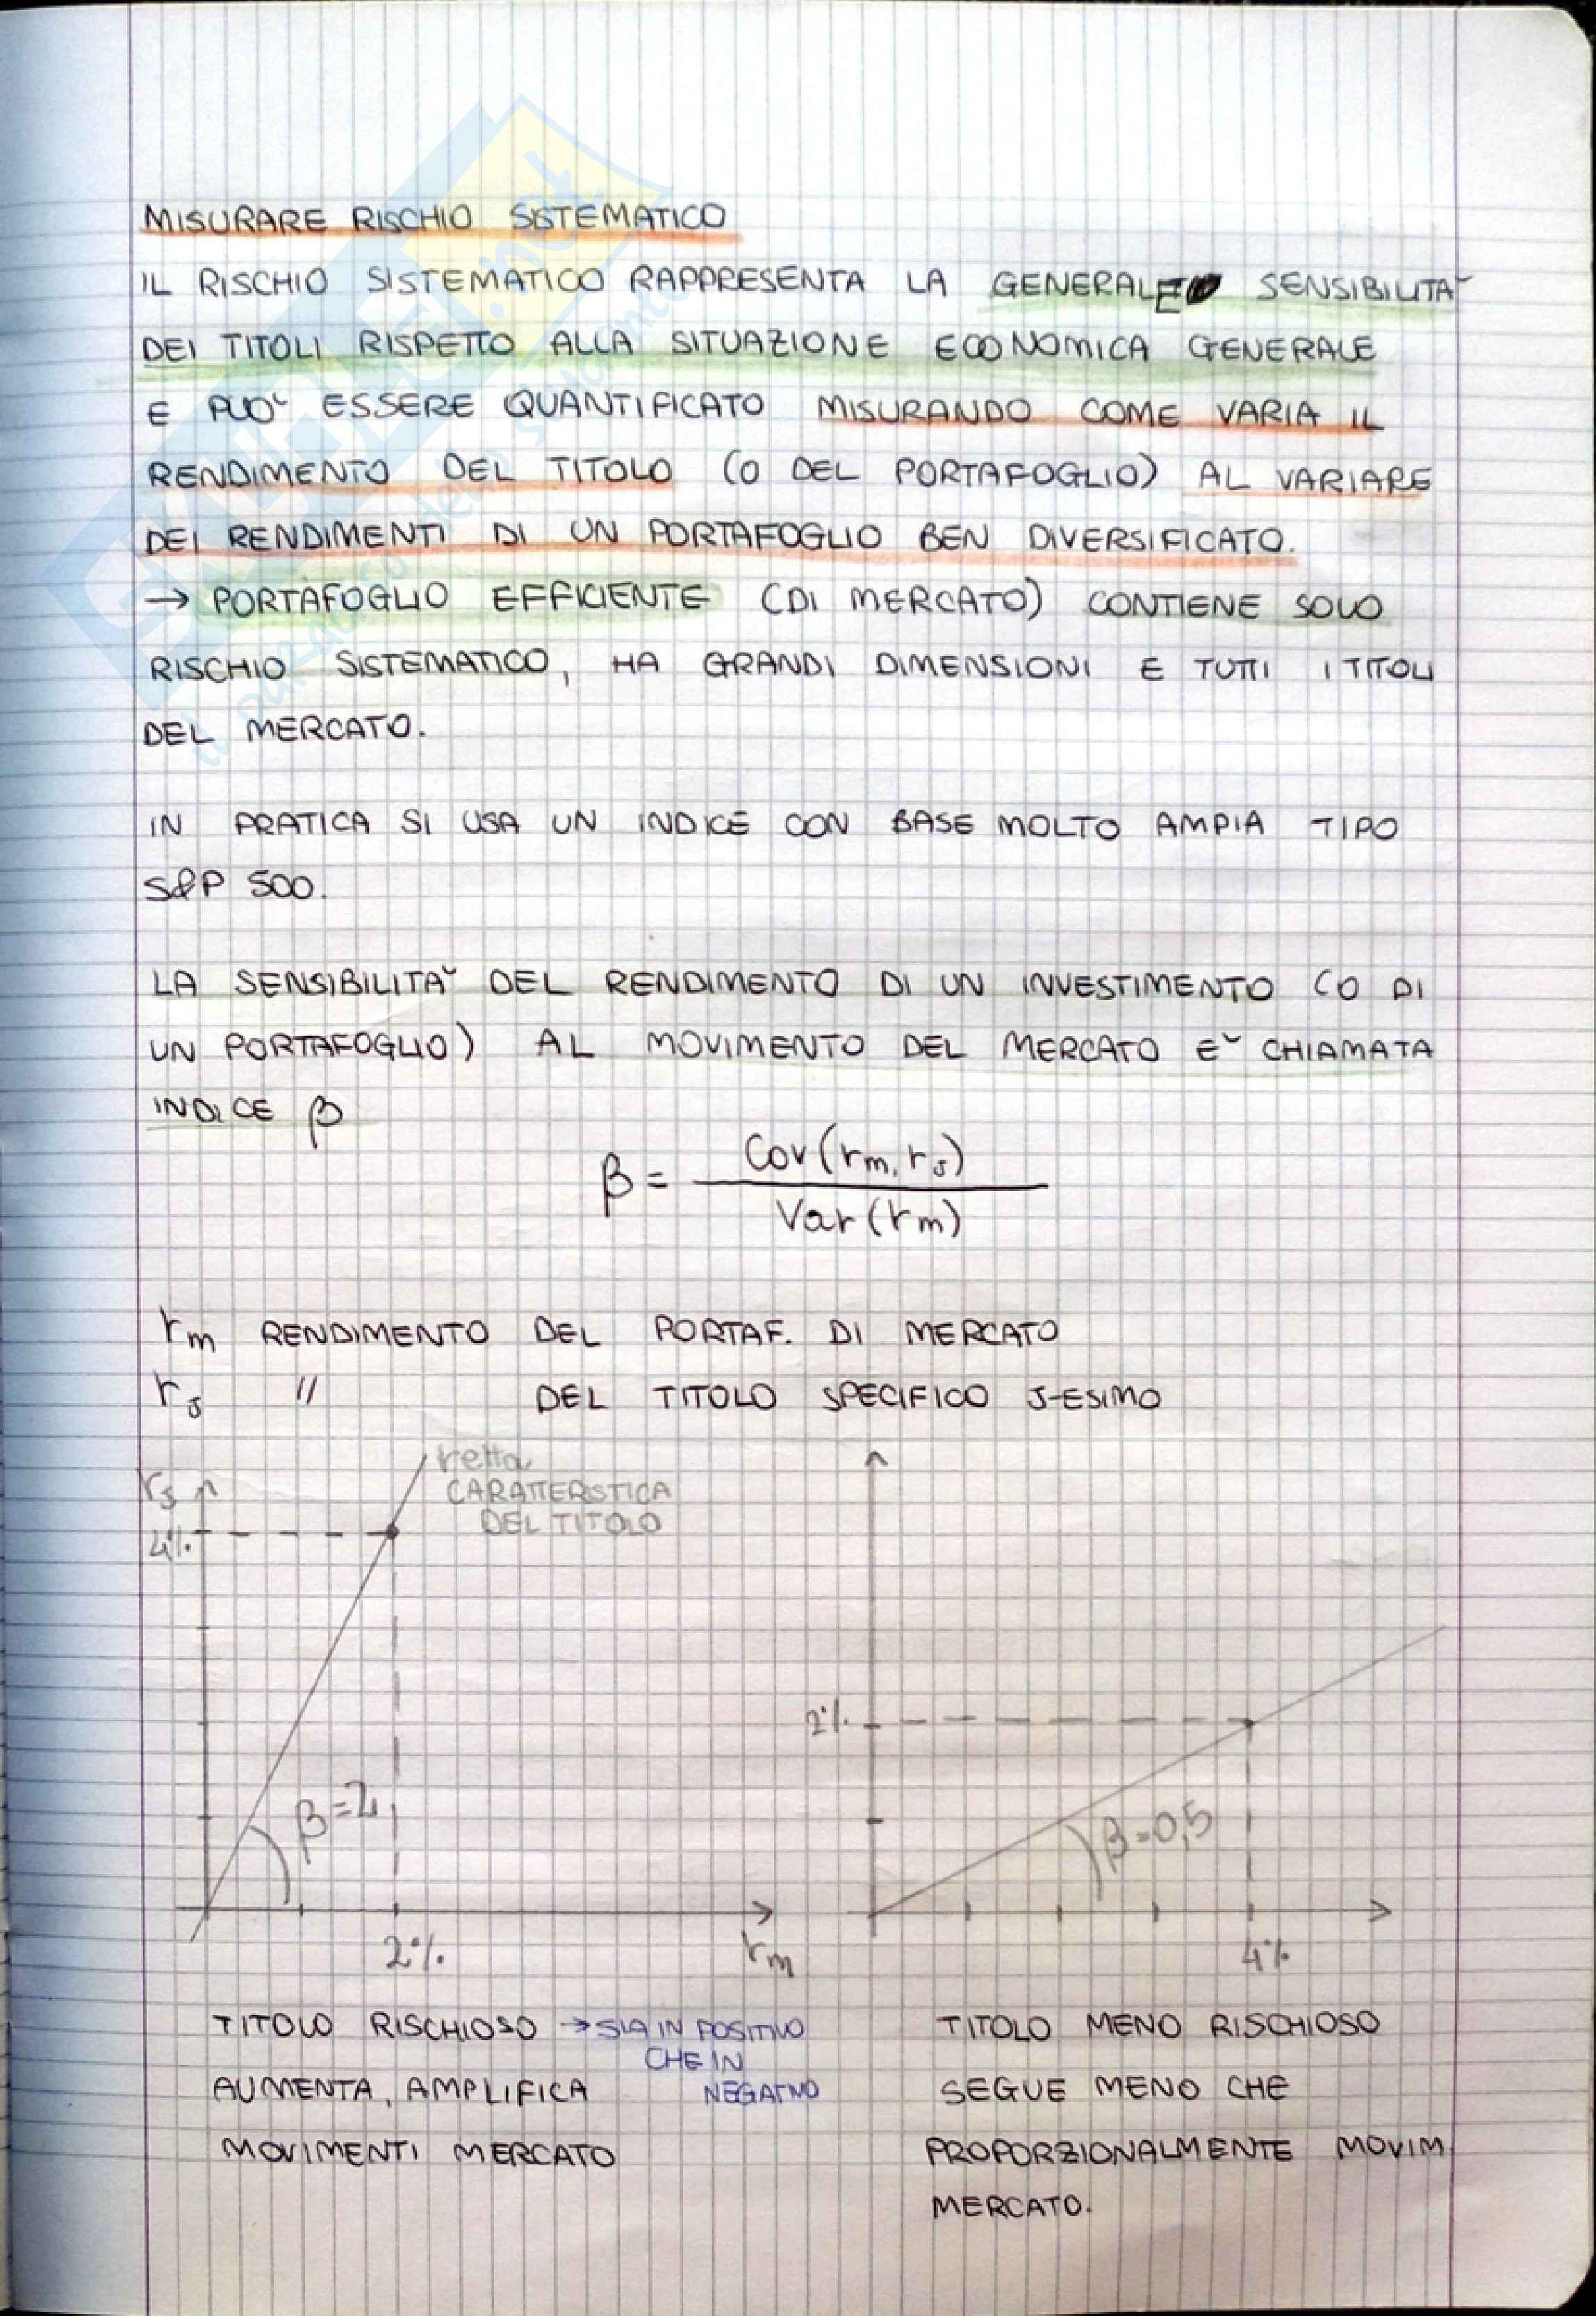 MISURARE RISCHIO SISTEMATICO
IL RISCHIO SISTEMATICO RAPPRESENTA LA GENERALE SENSIBILITA'
DEI TITOLI RISPETTO ALLA SITUAZIONE ECONOMICA GENERALE
E PUO' ESSERE QUANTIFICATO MISURANDO COME VARIA IL
RENDIMENTO DEL TITOLO (O DEL PORTAFOGLIO) AL VARIARE
DEI RENDIMENTI DI UN PORTAFOGLIO BEN DIVERSIFICATO.
→ PORTAFOGLIO EFFICIENTE (DI MERCATO) CONTIENE SOLO
RISCHIO SISTEMATICO, HA GRANDI DIMENSIONI E TUTTI I TITOLI
DEL MERCATO.
IN PRATICA SI USA UN INDICE CON BASE MOLTO AMPIA TIPO
S&P 500.
LA SENSIBILITA' DEL RENDIMENTO DI UN INVESTIMENTO (O DI
UN PORTAFOGLIO) AL MOVIMENTO DEL MERCATO E' CHIAMATA
INDICE β
β = Cov(rm, rJ) / Var(rm)
rm RENDIMENTO DEL PORTAF. DI MERCATO
rJ " DEL TITOLO SPECIFICO J-ESIMO
retta
CARATTERISTICA
DEL TITOLO
rJ
4%
β=2
2%
rm
2%
β=0,5
4%
TITOLO RISCHIOSO → SIA IN POSITIVO
CHE IN
NEGATIVO
AUMENTA, AMPLIFICA
MOVIMENTI MERCATO
TITOLO MENO RISCHIOSO
SEGUE MENO CHE
PROPORZIONALMENTE MOVIM
MERCATO.